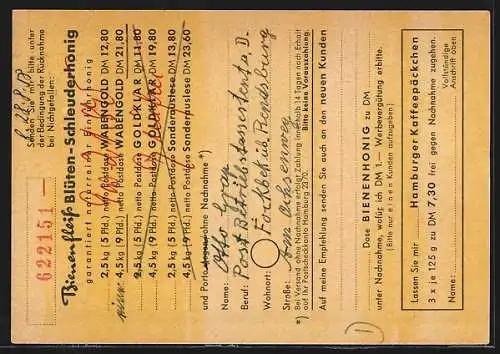 622151
Senden Sie mir bitte unter
der Bedingung der Rücknahme
bei Nichtgefallen:
Bienenfleiß Blüten-Schleuderhonig
garantiert naturreiner Bienenhonig
2,5 kg (5 Pfd.) netto Postdose WABENGOLD DM 12,80
4,5 kg (9 Pfd.) netto Postdose WABENGOLD DM 21,80
2,5 kg (5 Pfd.) netto Postdose GOLDKLAR DM 11,80
4,5 kg (9 Pfd.) netto Postdose GOLDKLAR DM 19,80
2,5 kg (5 Pfd.) netto Postdose Sonderauslese DM 13,80
4,5 kg (9 Pfd.) netto Postdose Sonderauslese DM 23,60
und Porto Nachnahme *)
Name: Otto
Beruf: Postbetriebsassistent a. D.
Wohnort: Fockbek üb. Rendsburg
Straße: Am
*) Bei Versand ohne Nachnahme erfolgt Zahlung innerhalb 14 Tagen nach Erhalt
auf Ihr Postscheckkonto Hamburg 2270. Bitte keine Vorauszahlung.
Auf meine Empfehlung senden Sie auch an den neuen Kunden
Dose BIENENHONIG zu DM
unter Nachnahme, wofür ich DM 1.— Werbevergütung erbitte.
(Bitte nur einen Kunden aufzugeben)
Lassen Sie mir Hamburger Kaffeepäckchen
3 x je 125 g zu DM 7,30 frei gegen Nachnahme zugehen.
Vollständige
Anschrift oben
Name:
1